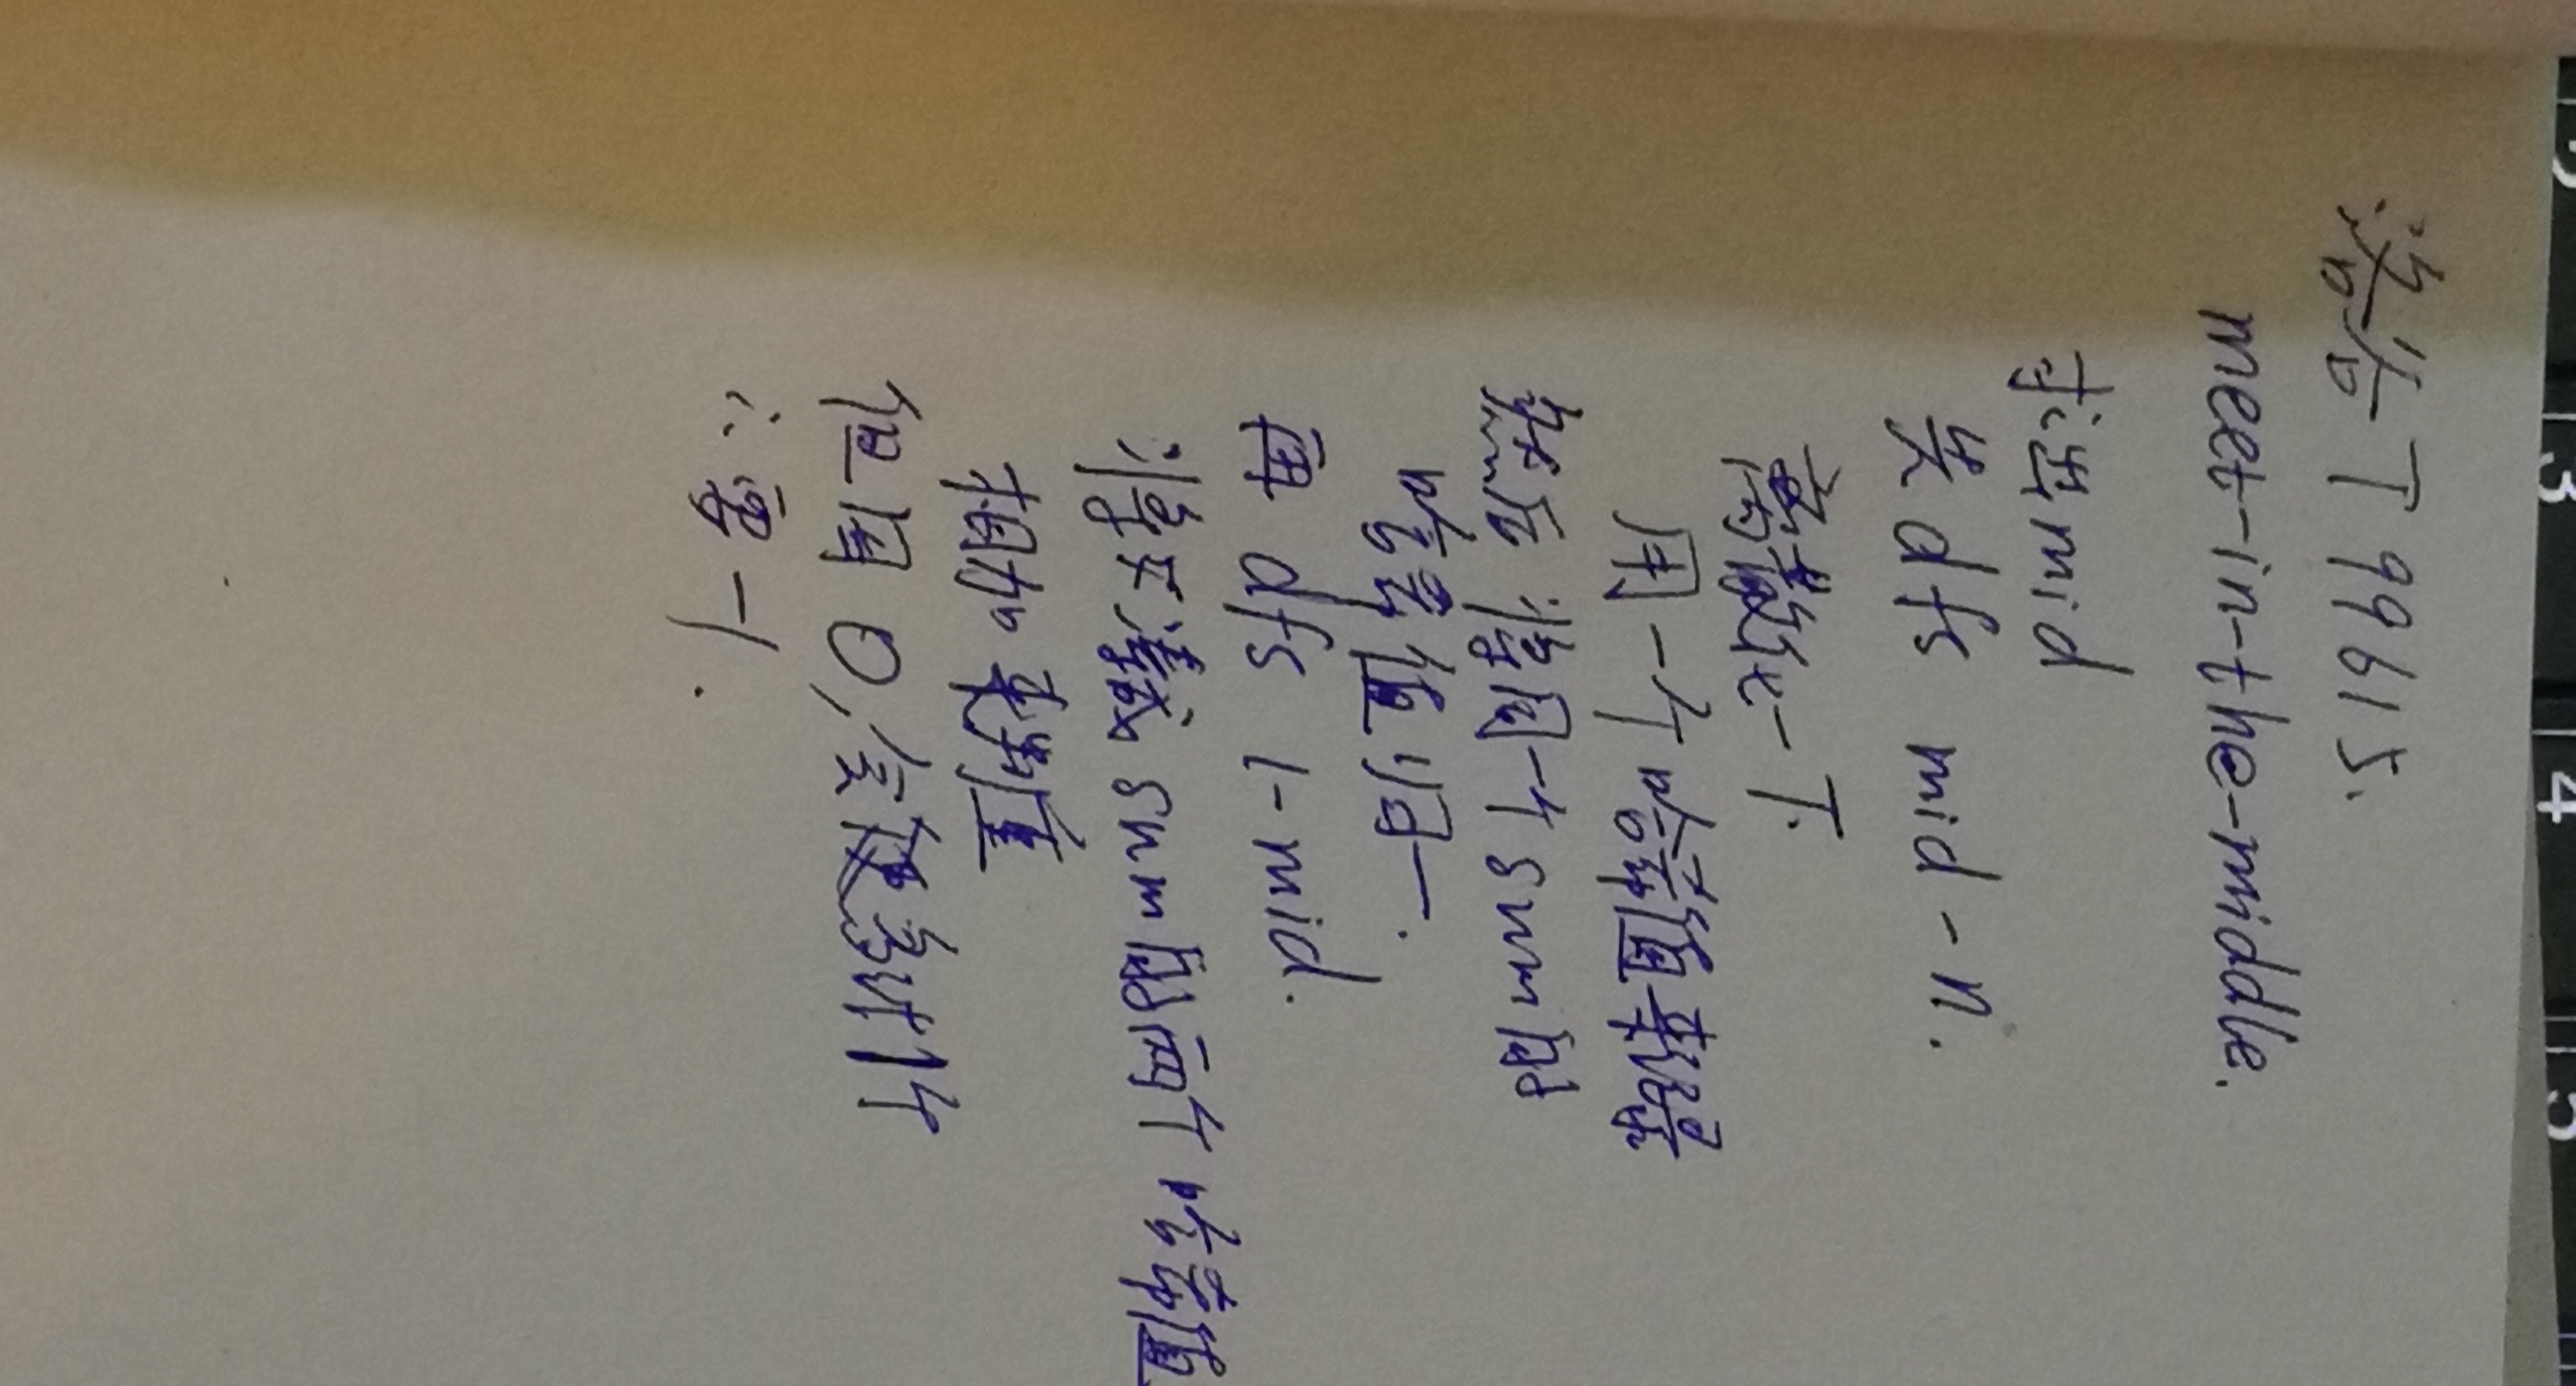 2 3 4 5
洛谷 T 99615.
meet-in-the-middle.
求出mid
先dfs mid-n.
离散化一下
用一个哈希值来记录
然后将同一个sum的
哈希值归一.
再 dfs 1-mid.
将又凑成sum的两个哈希值
相加来判重
但因0,会使多计1个
∴要-1.